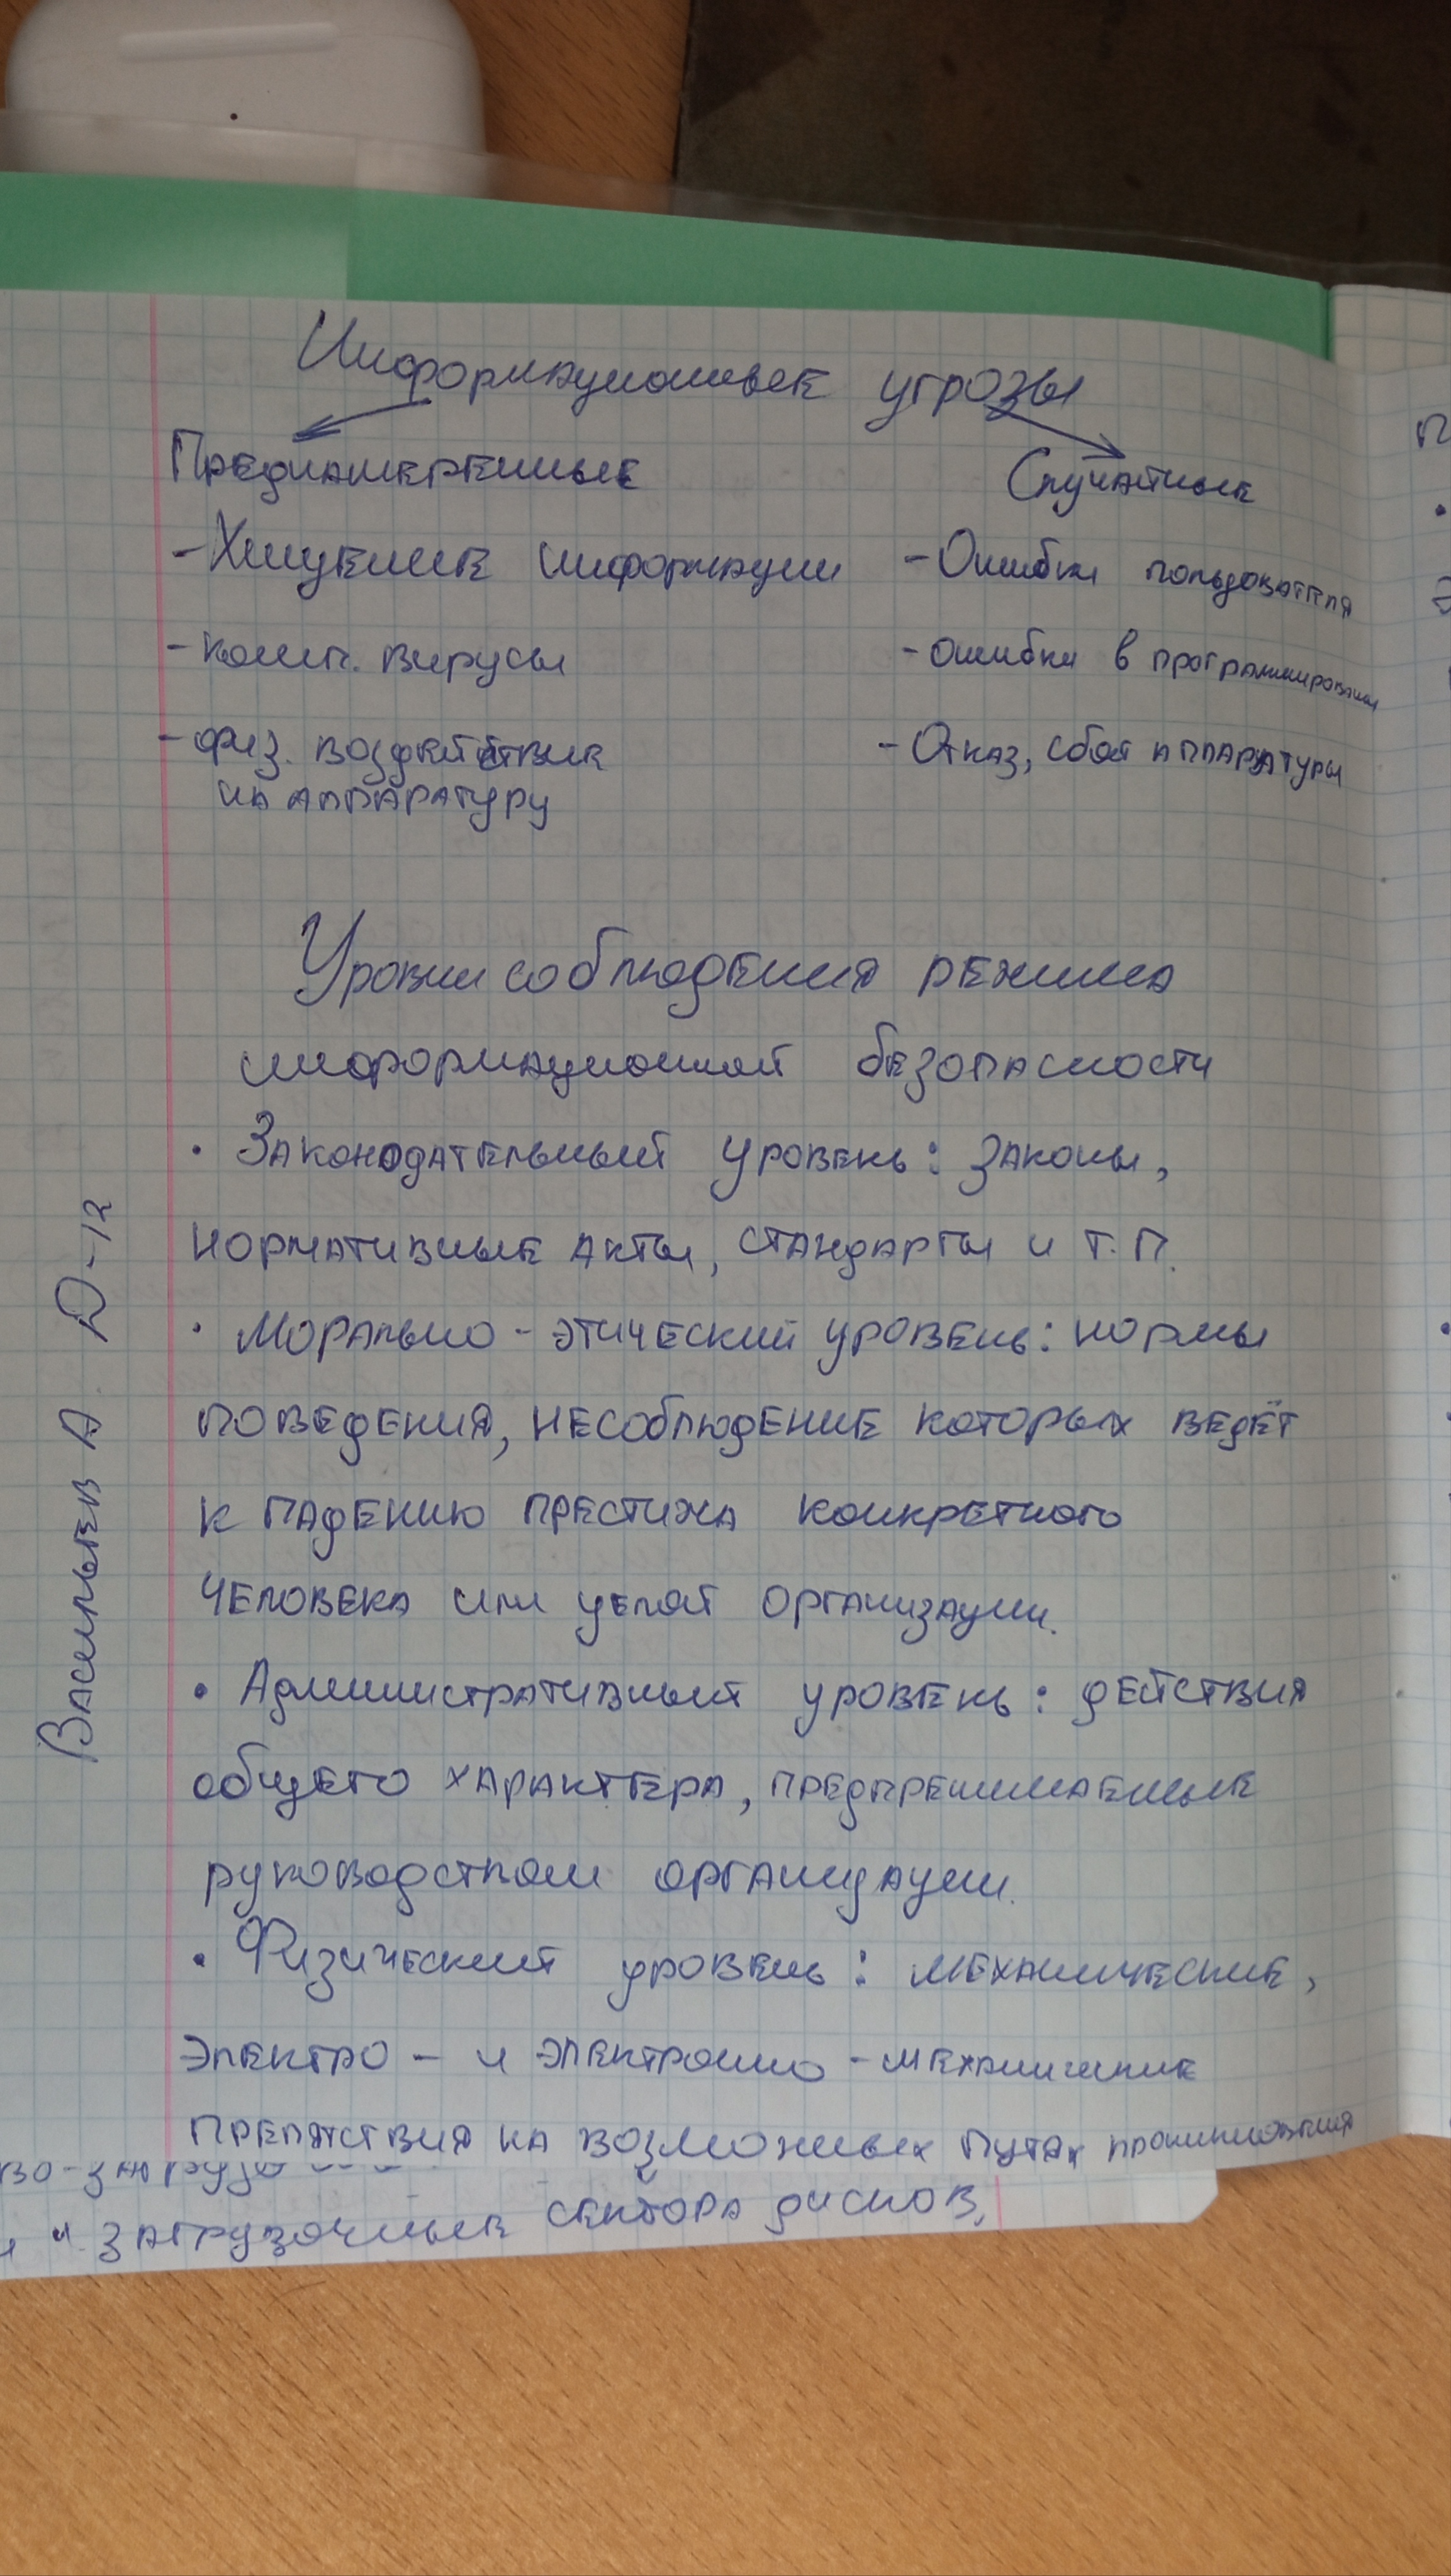 Информационные угрозы
Преднамеренные Случайные
- Хищение информации - Ошибки пользователя
- комп. вирусы - Ошибки в программировании
- физ. воздействие - Отказ, сбой аппаратуры
на аппаратуру
Уровни соблюдения режима
информационной безопасности
• Законодательный уровень: законы,
нормативные акты, стандарты и т.п.
• Морально - этический уровень: нормы
поведения, несоблюдение которых ведёт
к падению престижа конкретного
человека или целой организации.
• Административный уровень: действия
общего характера, предпренимаемые
руководством организации.
• Физический уровень: механические,
электро - и электронно - механические
препятствия на возможных путях проникновения
загрузочные сектора дисков,
Васильев А Д-12